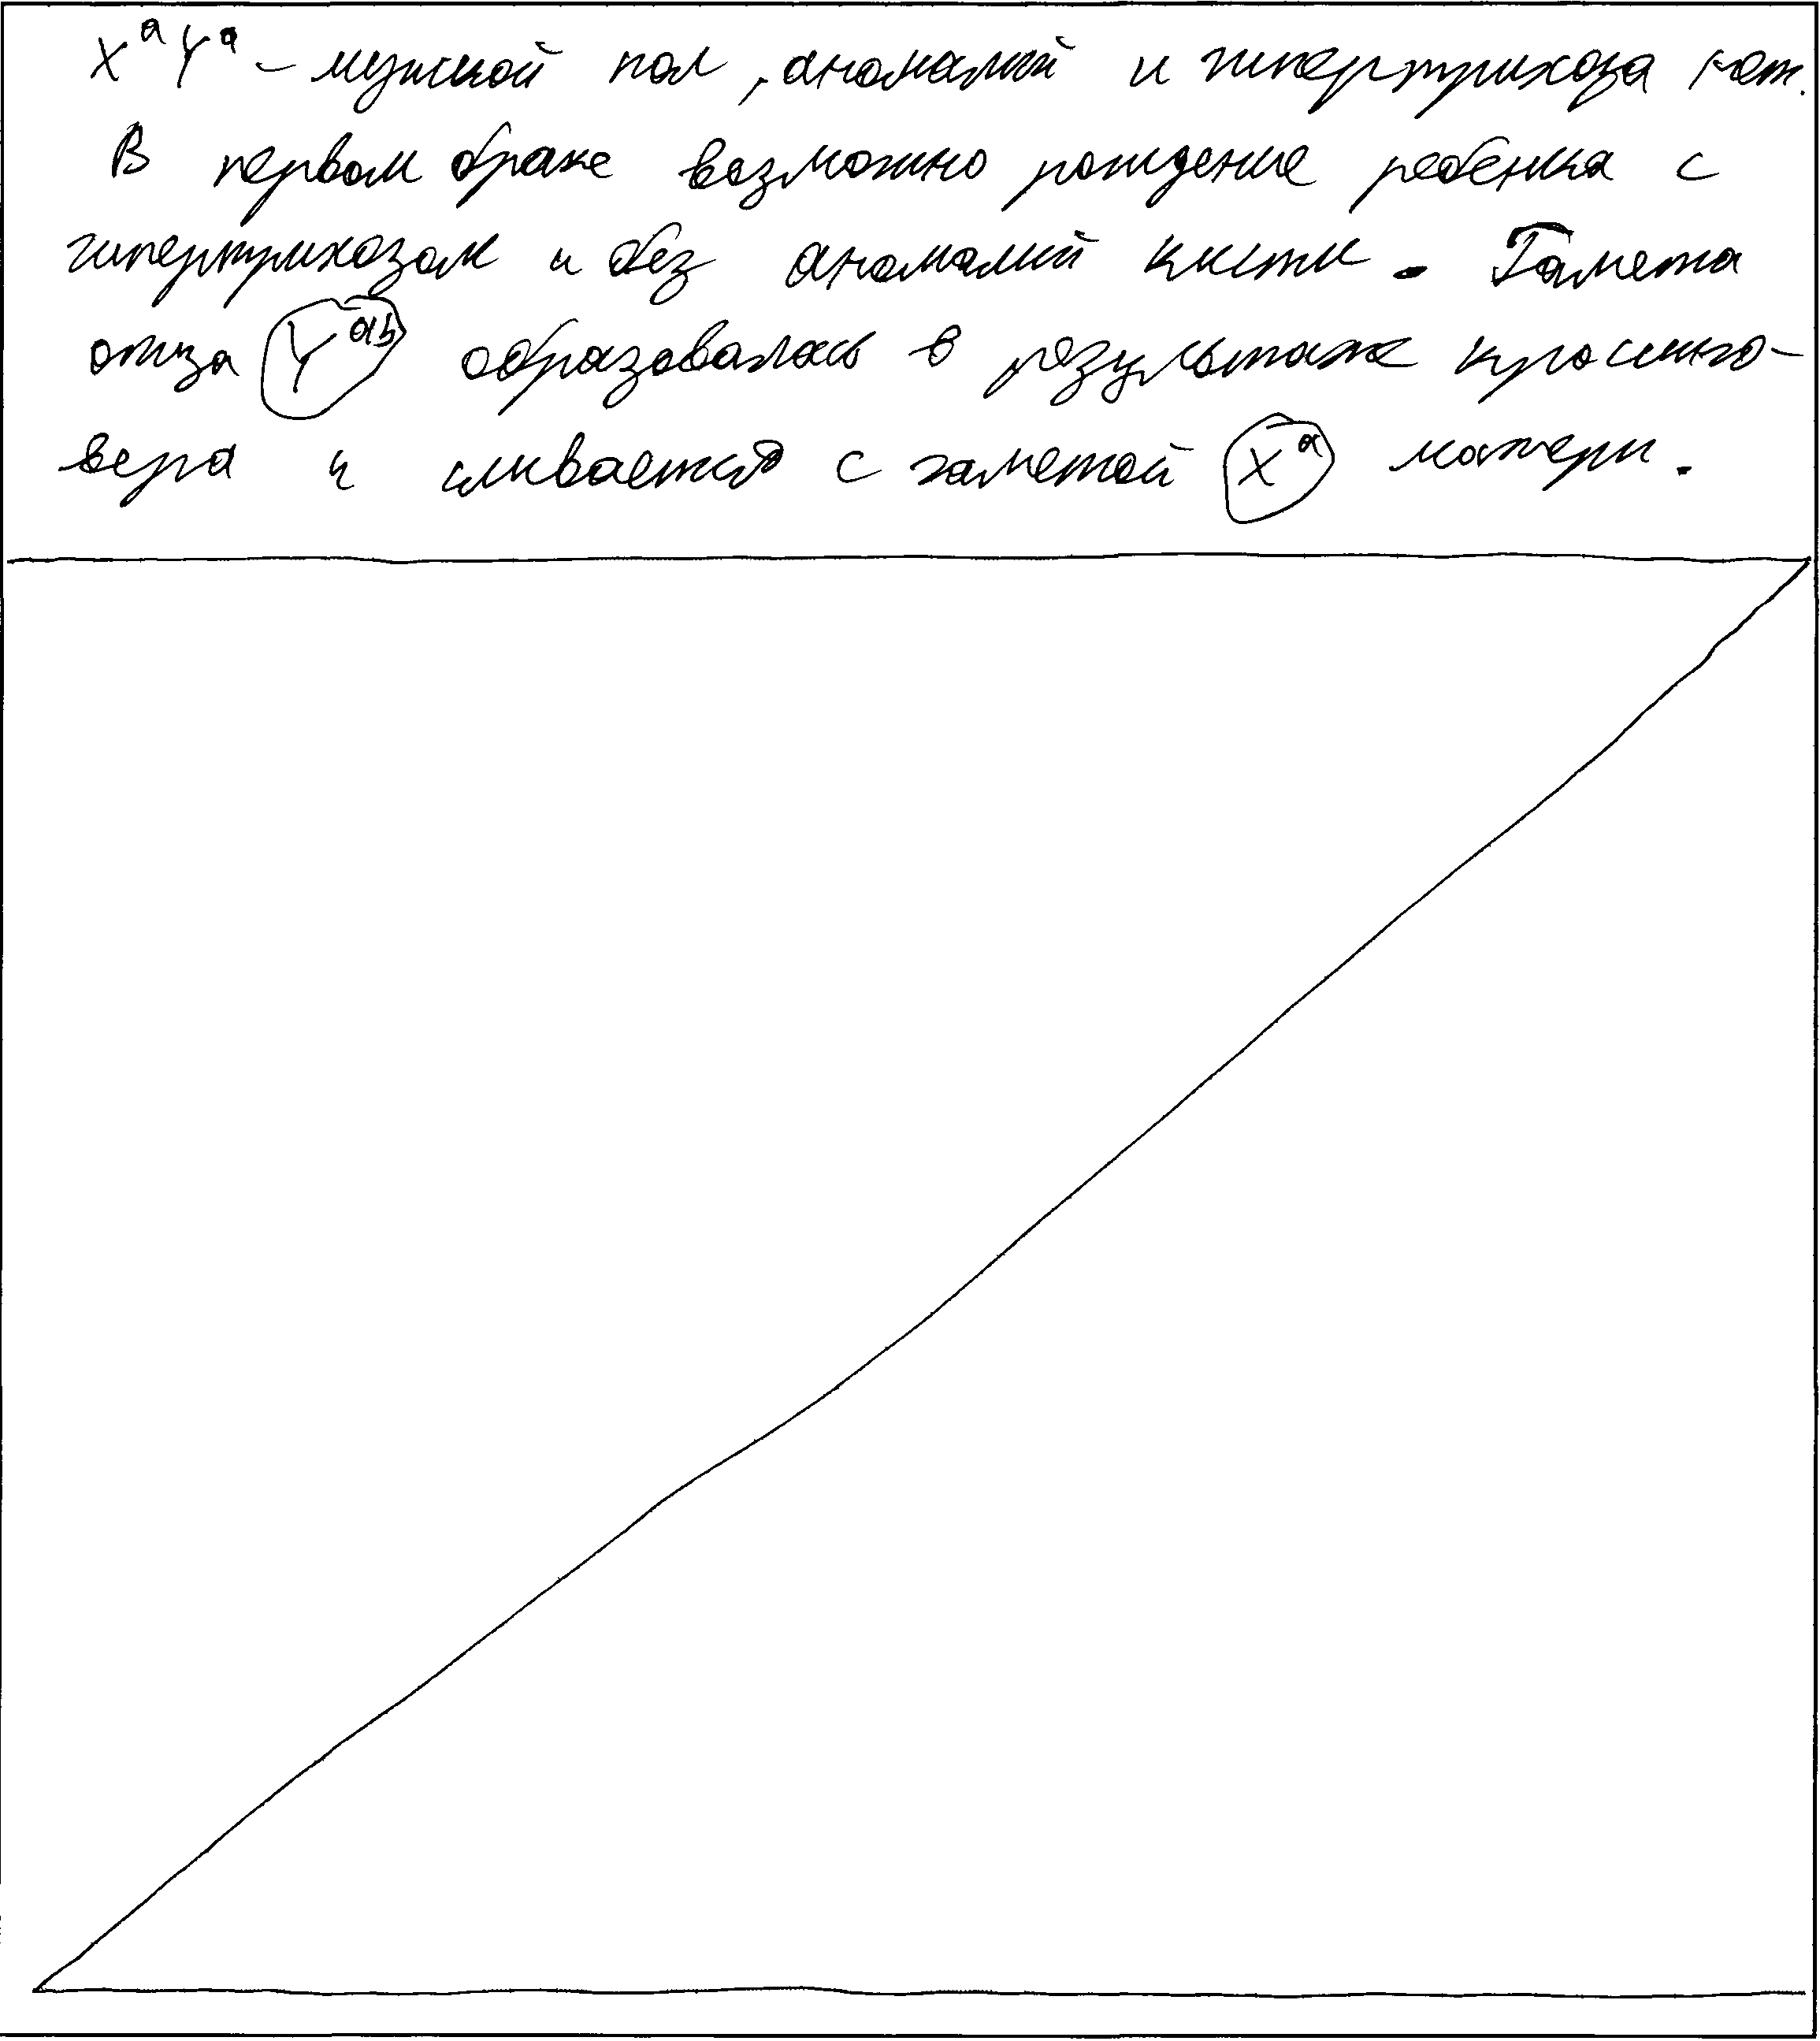 XᵃYᵃ – мужской пол, аномалий и гипертрихоза нет.
В первом браке возможно рождение ребенка с
гипертрихозом и без аномалий кисти. Гамета
отца Yᵃᵇ образовалась в результате кроссинго-
вера и сливается с гаметой Xᵃ матери.